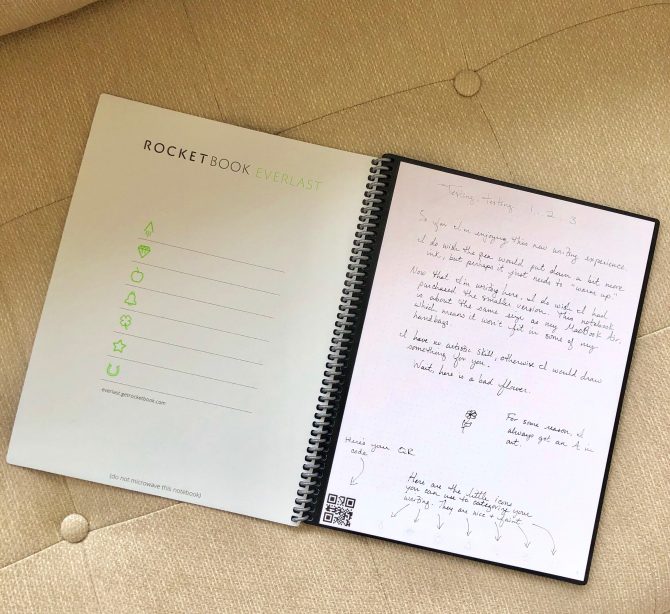 ROCKETBOOK EVERLAST
everlast.getrocketbook.com
(do not microwave this notebook)
Testing, testing 1, 2, 3
So far I'm enjoying this new writing experience.
I do wish the pen would put down a bit more
ink, but perhaps it just needs to "warm up."
Now that I'm writing here, I do wish I had
purchased the smaller version. This notebook
is about the same size as my MacBook Air,
which means it won't fit in some of my
handbags.
I have no artistic skill, otherwise I would draw
something for you.
Wait, here is a bad flower.
For some reason, I
always got an A in
art.
Here's your QR
code
Here are the little icons
you can use to categorize your
writing. They are nice + faint.